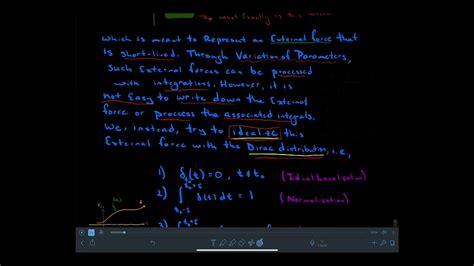 which is meant to Represent an External force that
is short-lived. Through Variation of Parameters,
such External forces can be processed
with integrations. However, it is
not Easy to write down the External
force or process the associated integrals.
We, instead, try to idealize this
External force with the Dirac distribution, i.e.,
1) δ(t) = 0, t ≠ t₀ (Ideal localization)
2) ∫ δ(t) dt = 1 (Normalization)
3)